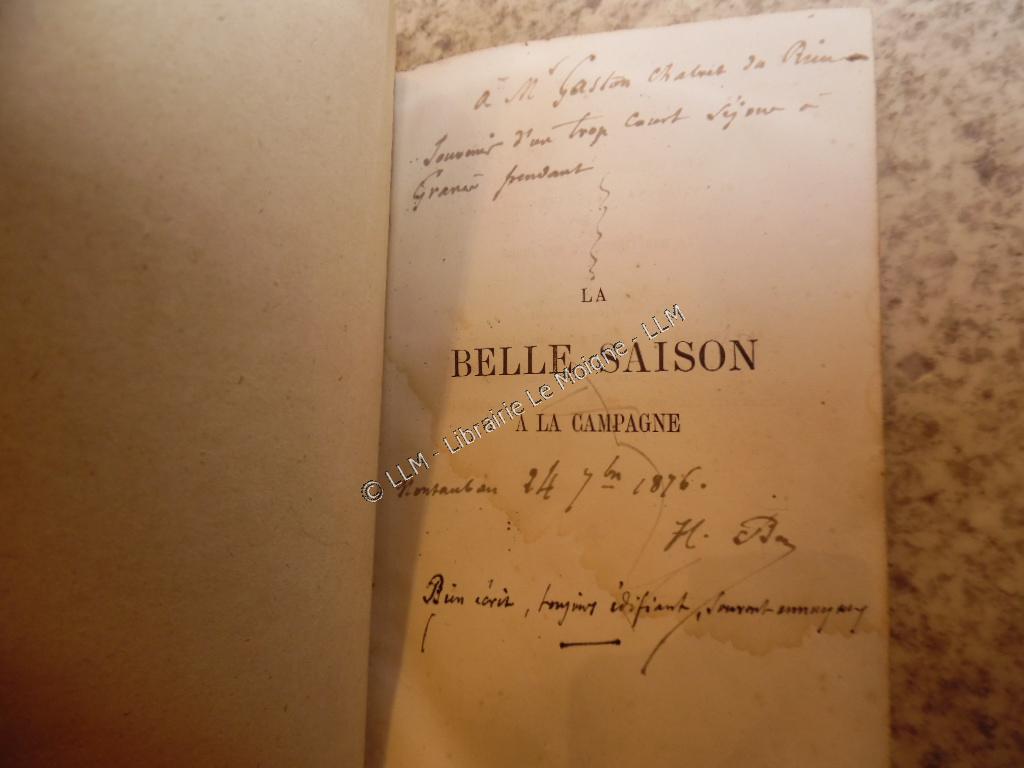 à Mr Gaston Chalret du Rieu
Souvenir d'un trop court séjour à
pendant
LA
BELLE SAISON
A LA CAMPAGNE
© LLM - Librairie Le Moigne - LLM
Montauban 24 7bre 1876.
H.
Bien écrit, toujours édifiant, souvent ennuyeux